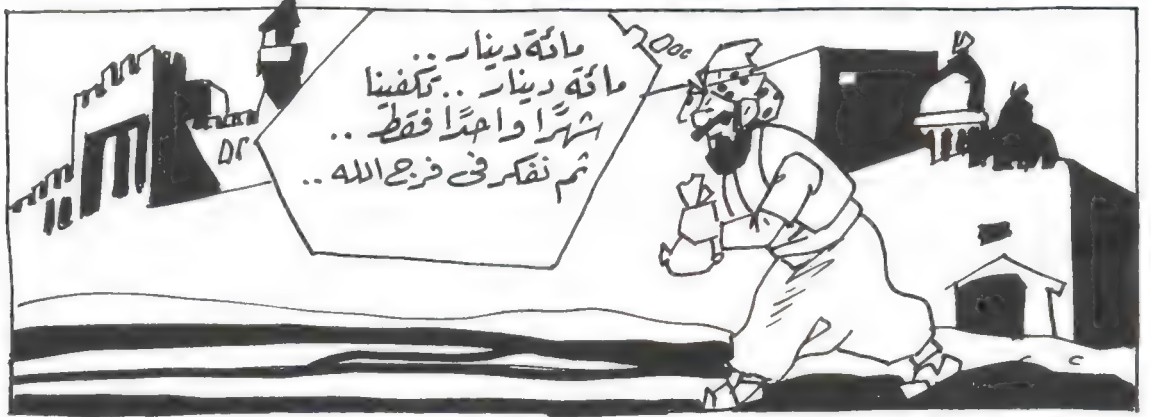 مائة دينار ..
مائة دينار .. تكفينا
شهرًا واحدًا فقط ..
ثم نفكر فى فرج الله ..